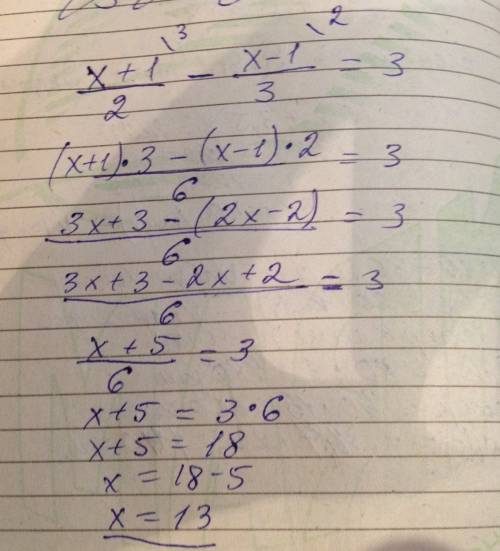 (x+1)/2 \3 - (x-1)/3 \2 = 3
((x+1)·3 - (x-1)·2)/6 = 3
(3x+3-(2x-2))/6 = 3
(3x+3-2x+2)/6 = 3
(x+5)/6 = 3
x+5 = 3·6
x+5 = 18
x = 18-5
x = 13